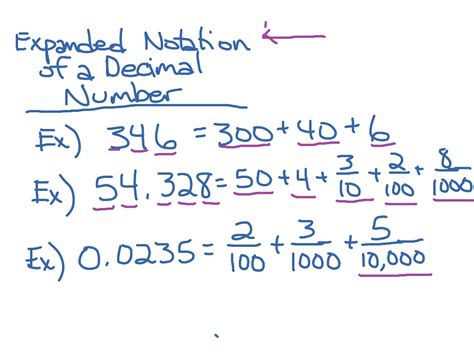 Expanded Notation
of a Decimal
Number
Ex) 346 = 300 + 40 + 6
Ex) 54.328 = 50 + 4 + 3/10 + 2/100 + 8/1000
Ex) 0.0235 = 2/100 + 3/1000 + 5/10,000